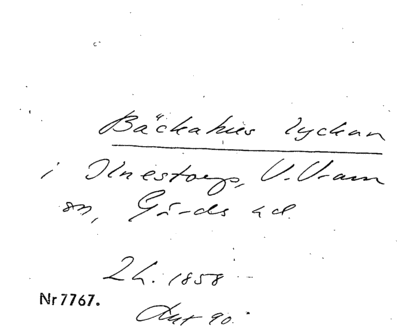 Bäckahus lyckan
i Ilnestorp, V. Vram
sn, Gärds hd.
2h. 1858
Nr 7767.
Akt 90.